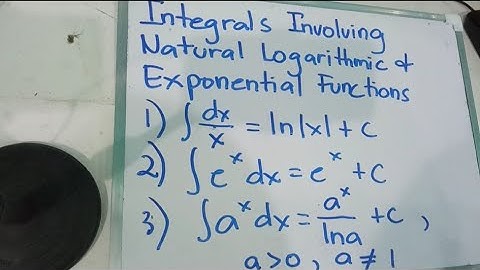 Integrals Involving
Natural Logarithmic &
Exponential Functions
1) ∫ dx/x = ln|x| + C
2) ∫ e^x dx = e^x + C
3) ∫ a^x dx = a^x/ln a + C ,
a > 0 , a ≠ 1